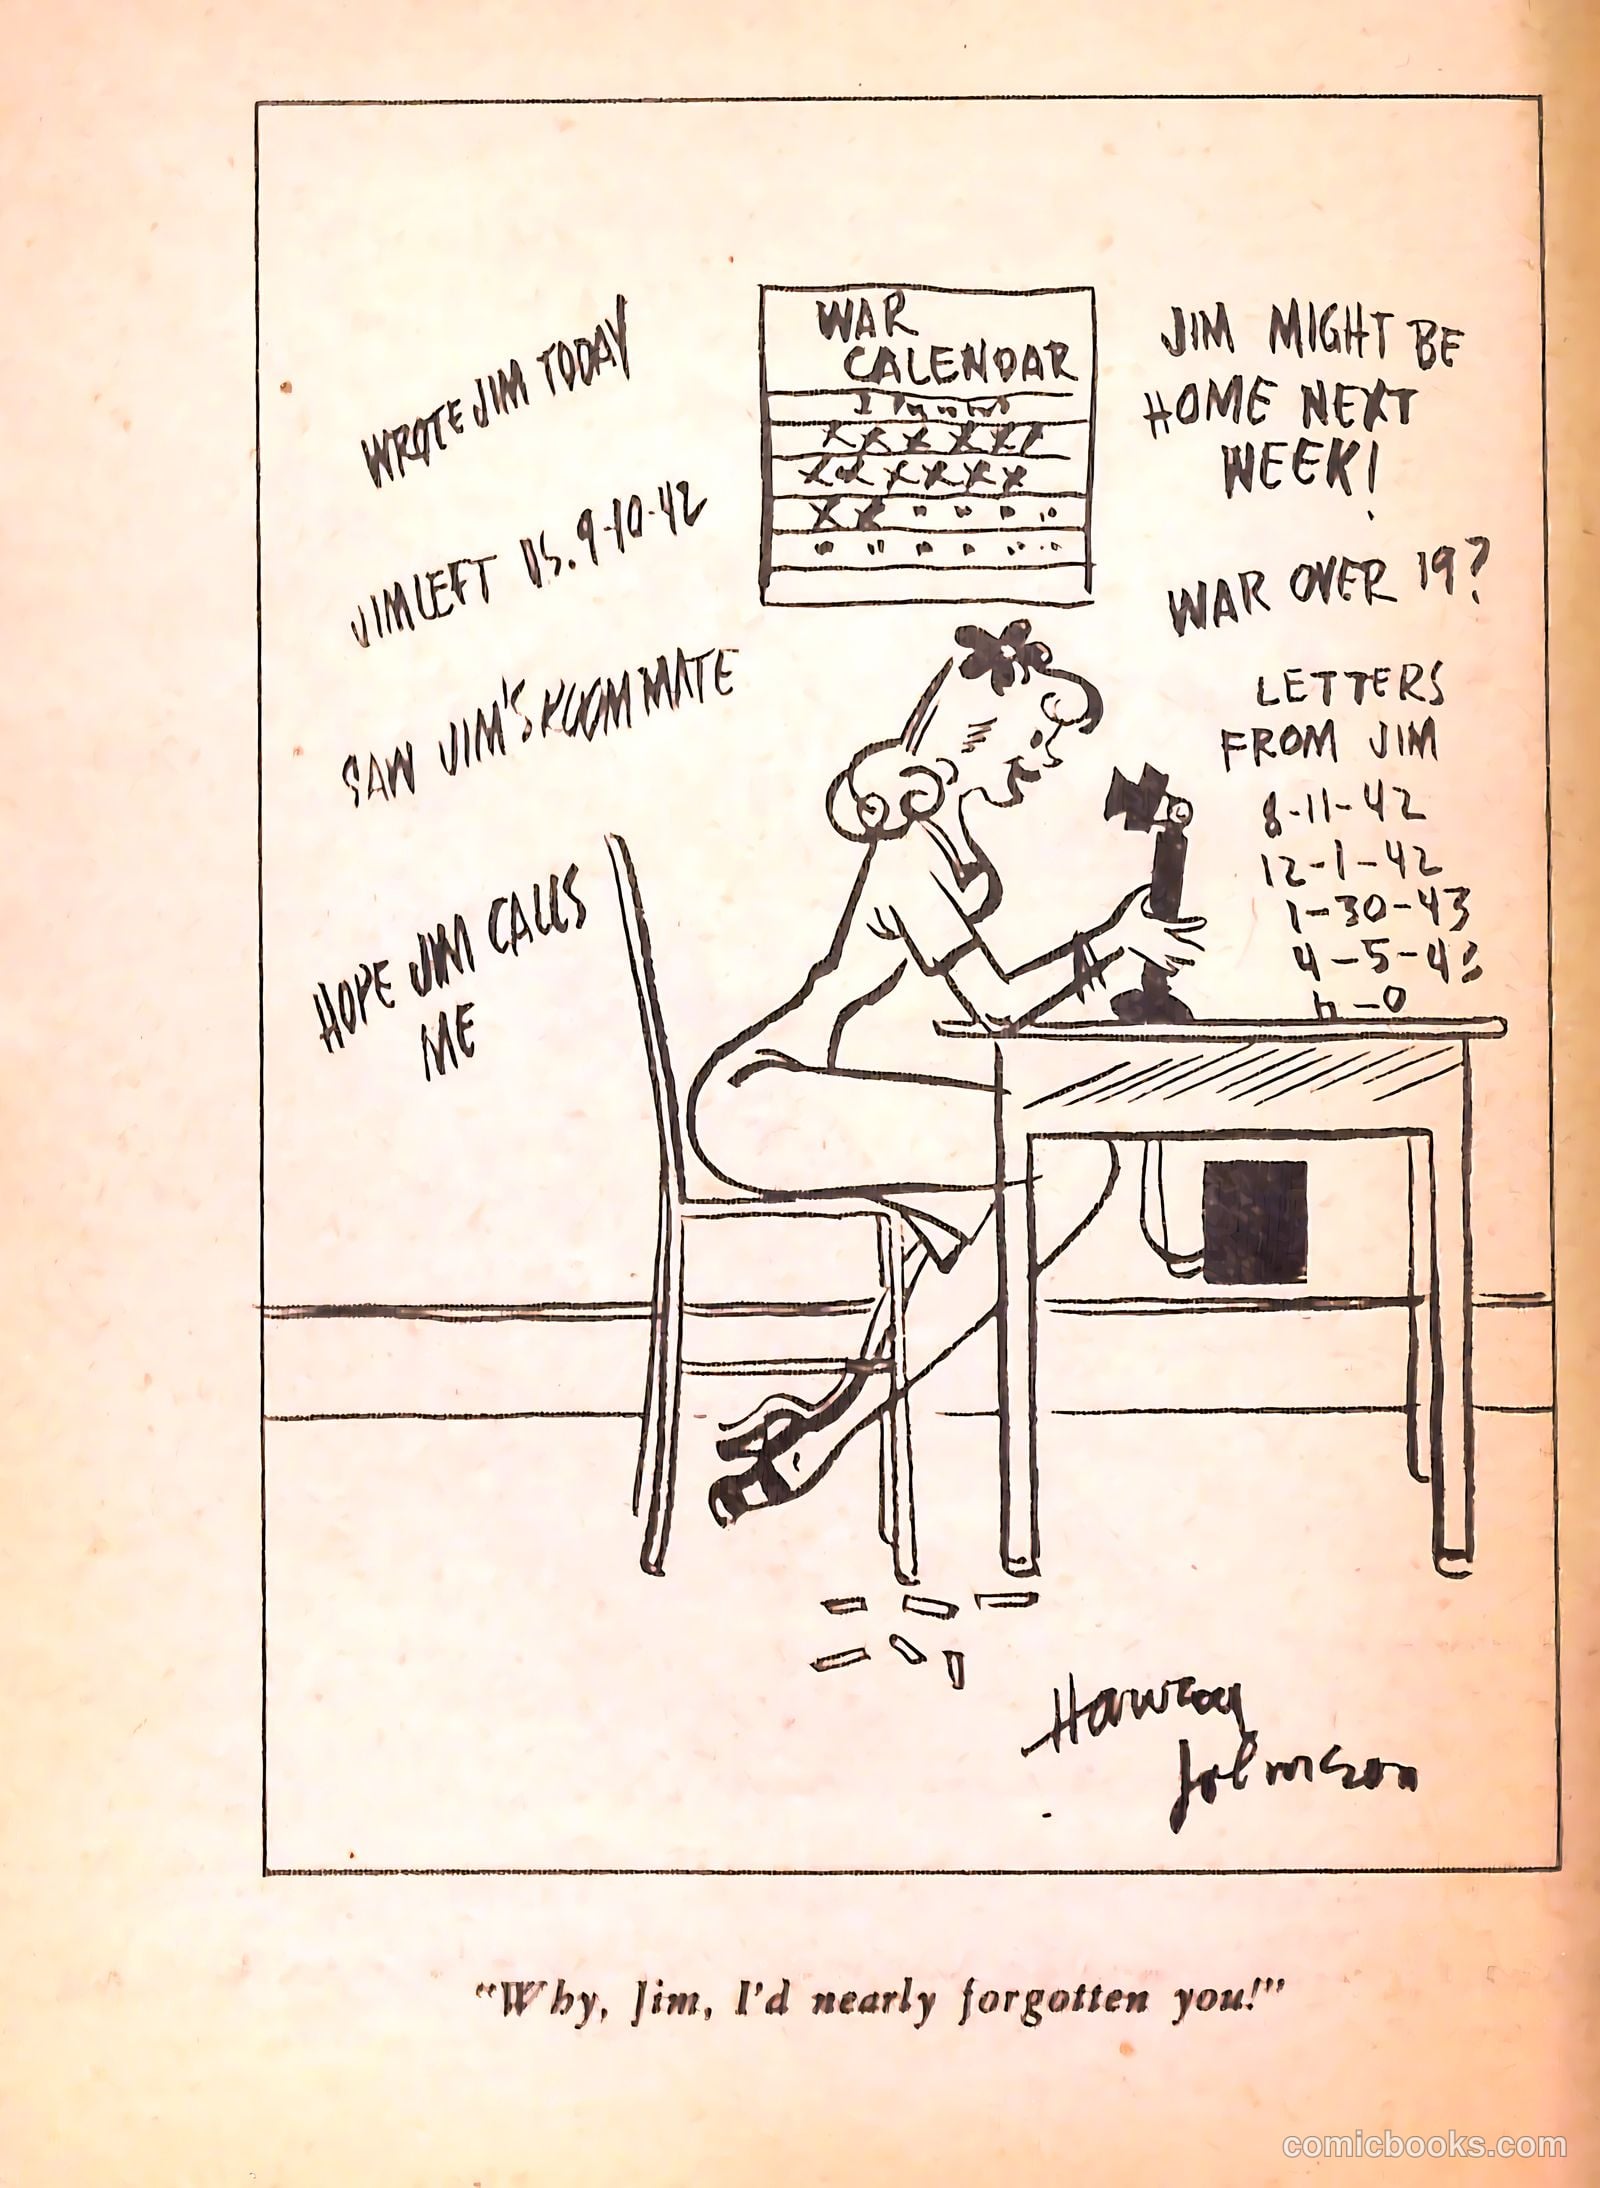 WROTE JIM TODAY
JIM LEFT US. 9-10-42
SAW JIM'S ROOM MATE
HOPE JIM CALLS
ME
WAR
CALENDAR
JIM MIGHT BE
HOME NEXT
WEEK!
WAR OVER 19?
LETTERS
FROM JIM
8-11-42
12-1-42
1-30-43
4-5-43
Johnson
"Why, Jim, I'd nearly forgotten you!"
comicbooks.com